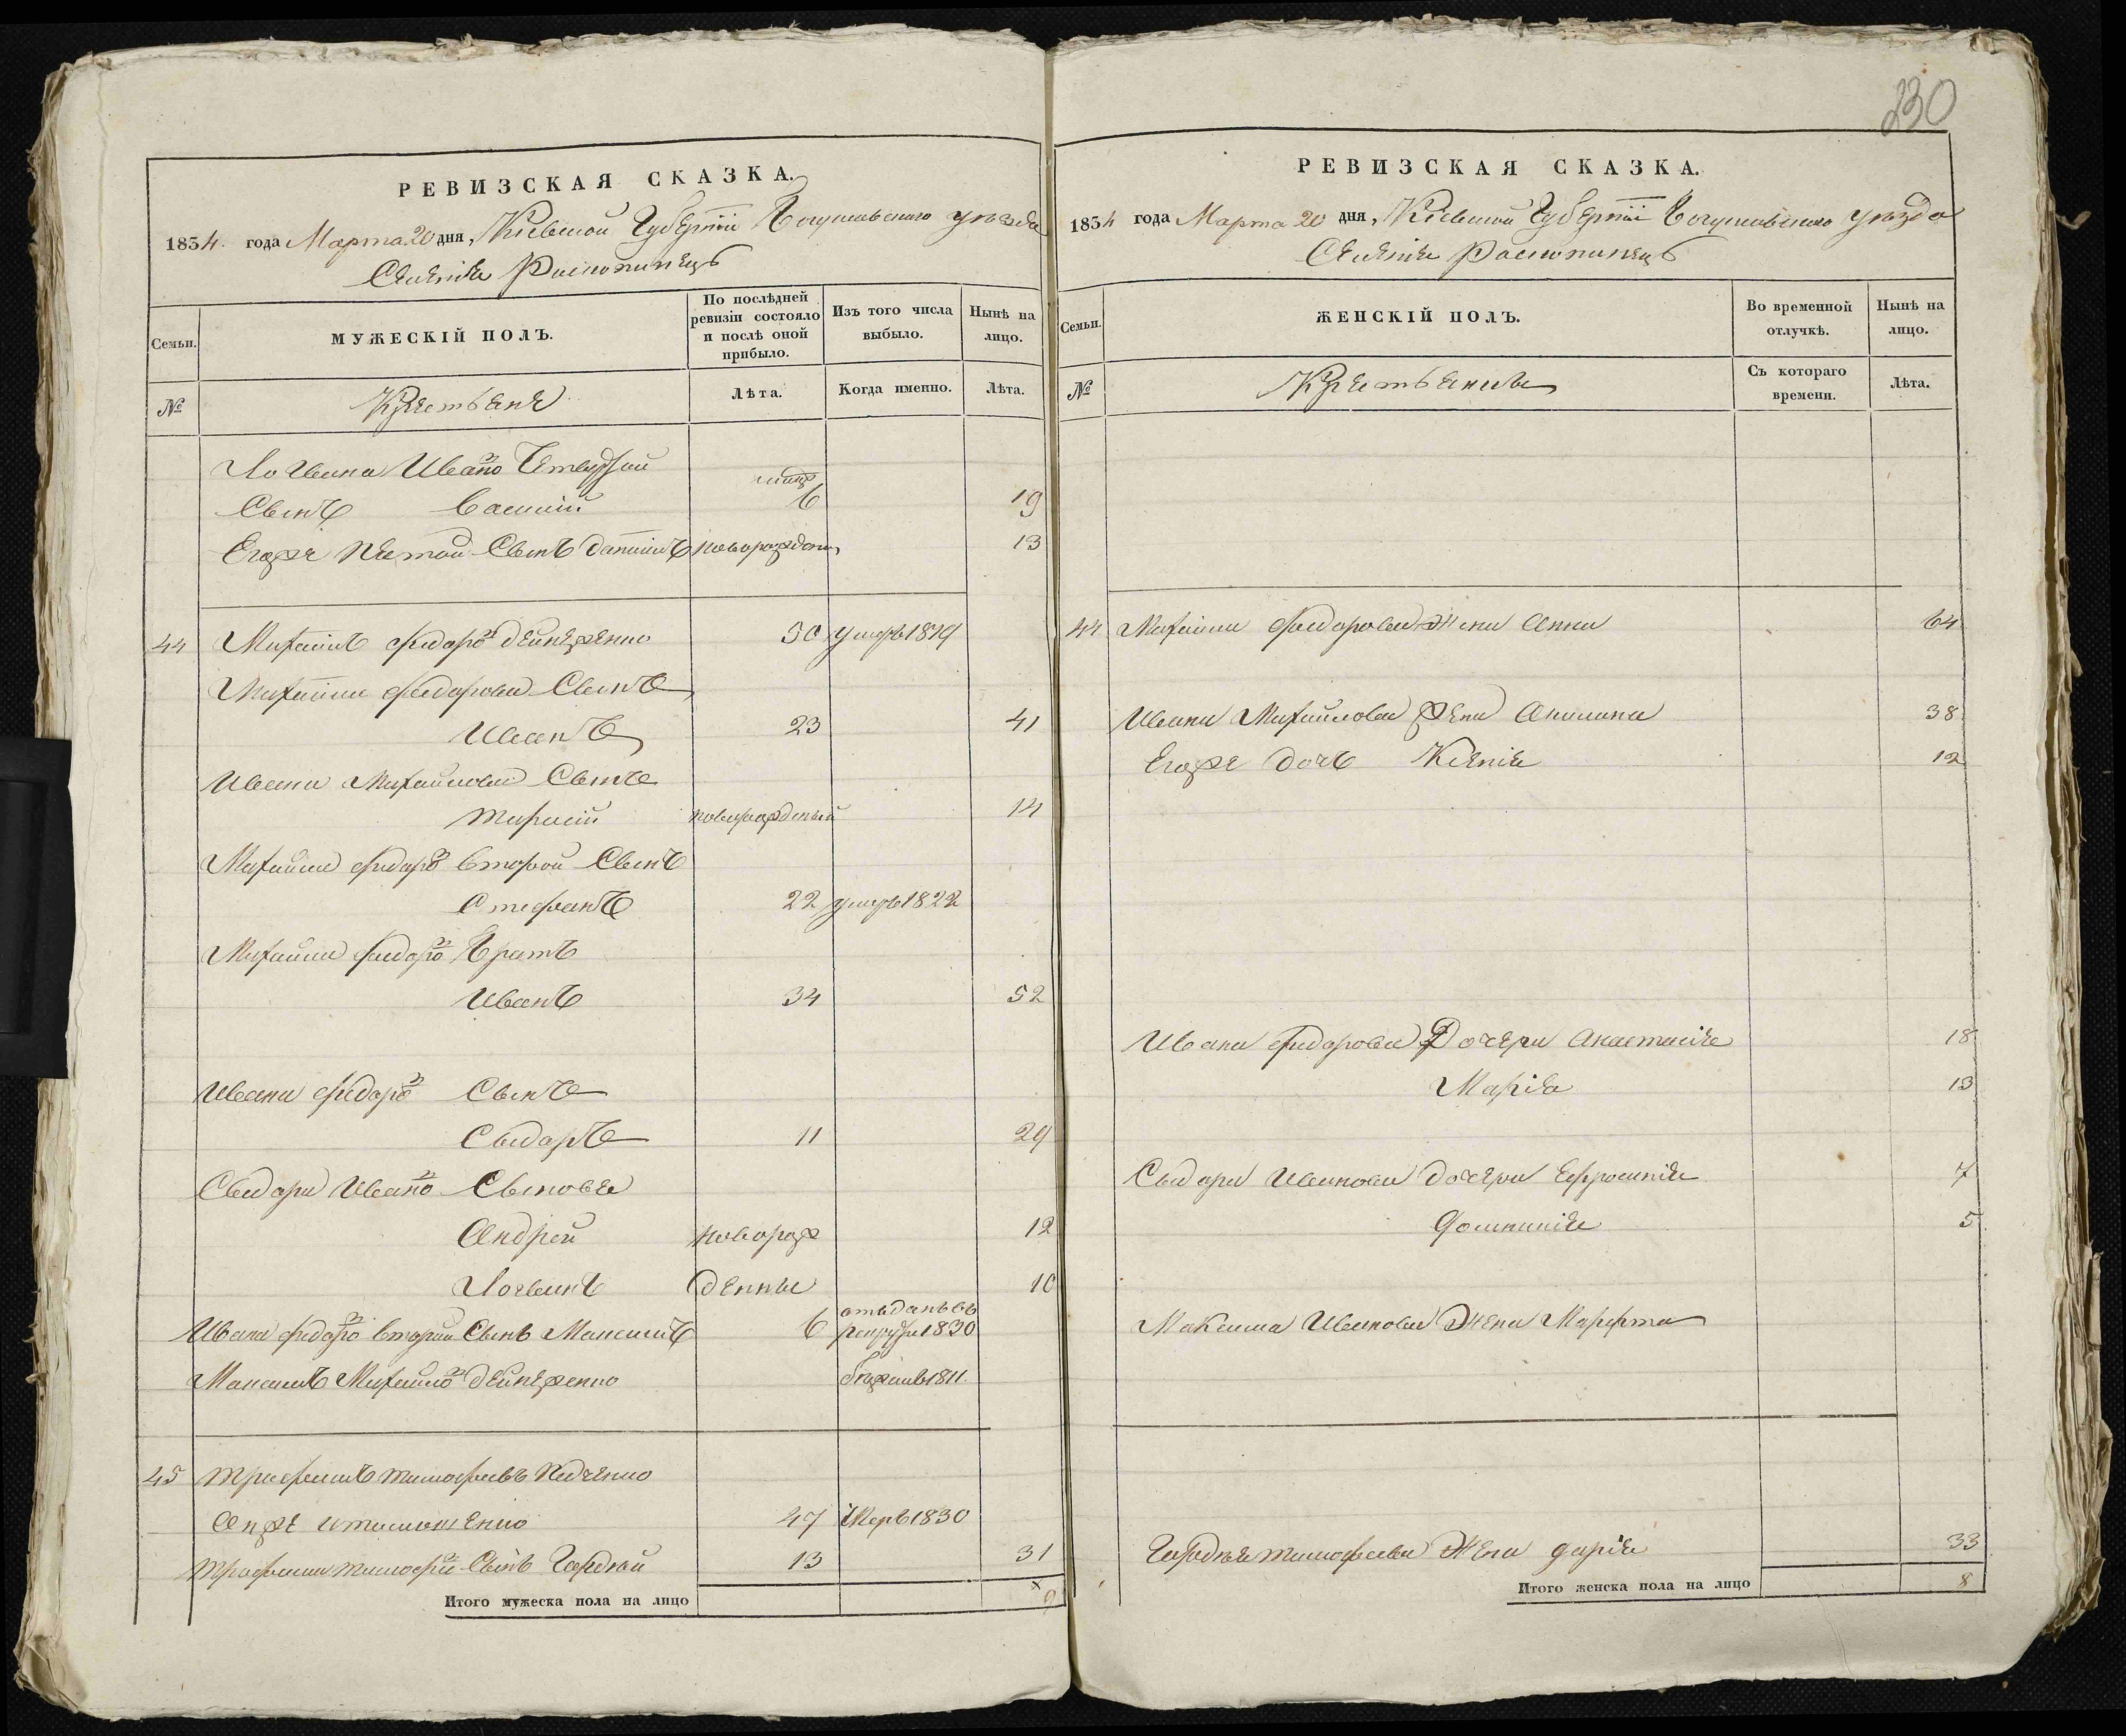 230
РЕВИЗСКАЯ СКАЗКА.
1834 года Марта 20 дня, Кіевской Губерніи Богуславского уѣзда
Селенія Распопинецъ
Семьи.
МУЖЕСКІЙ ПОЛЪ.
По послѣдней ревизіи состояло и послѣ оной прибыло.
Изъ того числа выбыло.
Нынѣ на лицо.
№
Крестьяне
Лѣта.
Когда именно.
Лѣта.
Логвина Ивано Четвертой
Сынъ Василій 6 19
Егоже Пятой Сынъ Даніилъ новорожден 13
44 Михаилъ Федоро Дейнеженко 50 умеръ 1819
Михаила Федорова Сынъ
Иванъ 23 41
Ивана Михайлова Сынъ
Тарасій новорожденый 14
Михаила Федоро Второй Сынъ
Стефанъ 22 умеръ 1822
Михаила Федоро Братъ
Иванъ 34 52
Ивана Федоро Сынъ
Сыдоръ 11 29
Сыдора Ивано Сыновья
Андрей новорож 12
Логвинъ денные 10
Ивана Федоро вторый Сынъ Максимъ 6 отъданъ въ рекруты 1830
Максимъ Михайло Дейнеженко бѣжалъ 1811
45 Трофимъ Тимофеевъ
Онже Итимошенко 47 умеръ 1830
Трофима Тимофе Сынъ Гордѣй 13 31
Итого мужеска пола на лицо 9
РЕВИЗСКАЯ СКАЗКА.
1834 года Марта 20 дня, Кіевской Губерніи Богуславского уѣзда
Селенія Распопинецъ
Семьи.
ЖЕНСКІЙ ПОЛЪ.
Во временной отлучкѣ.
Нынѣ на лицо.
№
Крестьянки
Съ котораго времени.
Лѣта.
44 Михаила Федорова Жена Анна 64
Ивана Михайлова Жена Акилина 38
Егоже дочь Ксенія 12
Ивана Федорова Дочери Анастасія 18
Марія 13
Сыдора Иванова дочери Ефросинія 7
Домникія 5
Максима Иванова Жена Марфта
Гордѣя Тимофеева Жена Дарія 33
Итого женска пола на лицо 8